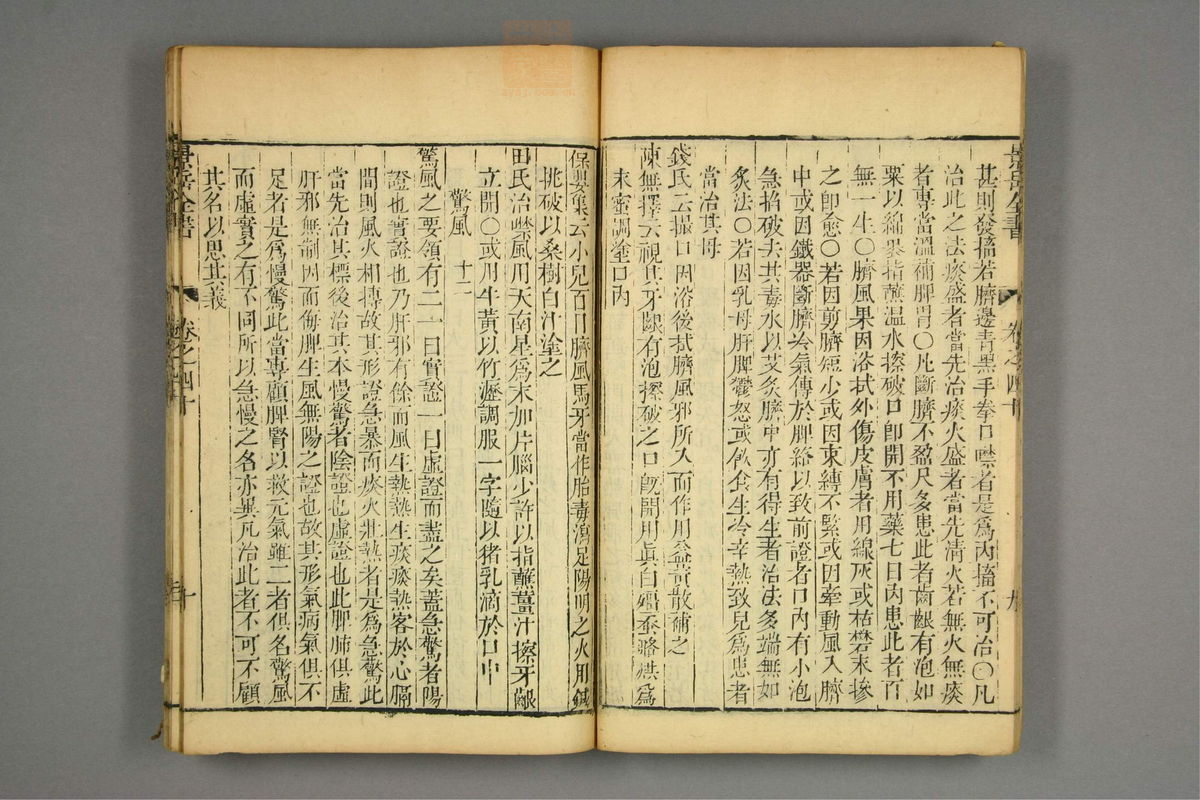 景岳全書 卷之四十 九
甚則發搐若臍邊青黑手拳口噤者是爲內搐不可治〇凡
治此之法痰盛者當先治痰火盛者當先清火若無火無痰
者專當溫補脾胃〇凡斷臍不盈尺多患此者齒齦有泡如
粟以綿裹指蘸温水擦破口卽開不用藥七日內患此者百
無一生〇臍風果因浴拭外傷皮膚者用綿灰或枯礬末摻
之卽愈〇若因剪臍短少或因束縛不緊或因牽動風入臍
中或因鐵器斷臍冷氣傳於脾絡以致前證者口內有小泡
急掐破去其毒水以艾灸臍中亦有得生者治法多端無如
灸法〇若因乳母肝脾鬱怒或飲食生冷辛熱致兒爲患者
當治其母
錢氏云撮口因浴後拭臍風邪所入而作用益黃散補之
陳無擇云視其牙齦有泡擦破之口旣開用眞白殭蚕略烘爲
末蜜調塗口內
保嬰集云小兒百日臍風馬牙當作胎毒瀉足陽明之火用鍼
挑破以桑樹白汁塗之
田氏治噤風用天南星爲末加片腦少許以指蘸薑汁擦牙齦
立開〇或用牛黃以竹瀝調服一字隨以猪乳滴於口中
驚風 十二
驚風之要領有二一曰實證一曰虛證而盡之矣蓋急驚者陽
證也實證也乃肝邪有餘而風生熱熱生痰痰熱客於心膈
間則風火相搏故其形證急暴而痰火壯熱者是爲急驚此
當先治其標後治其本慢驚者陰證也虛證也此脾肺俱虛
肝邪無制因而侮脾生風無陽之證也故其形氣病氣俱不
足者是爲慢驚此當專顧脾腎以救元氣雖二者俱名驚風
而虛實之有不同所以急慢之名亦異凡治此者不可不顧
其名以思其義
景岳全書 卷之四十 十